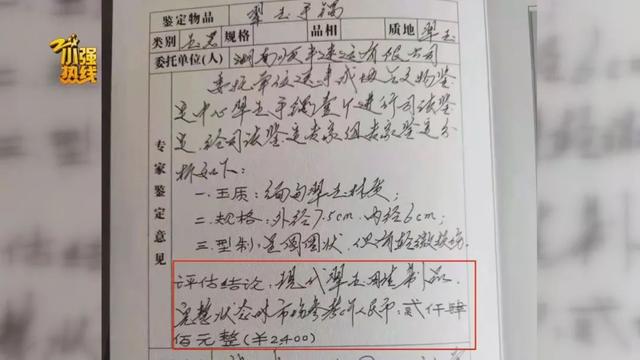 小强热线
鉴定物品 翠玉手镯
类别 玉器 规格 品相 质地 翠玉
委托单位(人) 湖南 有限公司
委托单位送来 文物鉴
定中心翠玉手镯壹个进行司法鉴
定,经司法鉴定专家组专家鉴定分
析如下:
专家鉴定意见
一.玉质:缅甸翠玉材质;
二.规格:外径7.5cm.内径6cm;
三.型制:呈圆圈状,
评估结论:现代翠玉 制品.
完整状态时市场参考价人民币:贰仟肆
佰元整(¥2400)